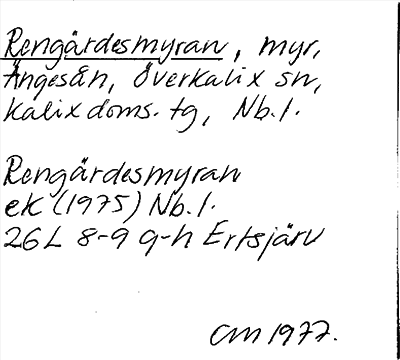 Rengärdesmyran, myr,
Ängesån, Överkalix sn,
Kalix doms. tg, Nb.l.
Rengärdesmyran
ek (1975) Nb.l.
26L 8-9 g-h Ertsjärv
CM 1977.